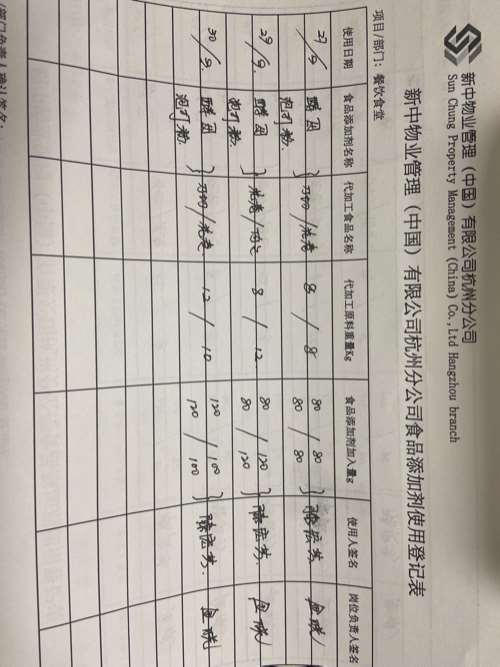 新中物业管理（中国）有限公司杭州分公司
Sun Chung Property Management (China) Co.,Ltd Hangzhou branch
新中物业管理（中国）有限公司杭州分公司食品添加剂使用登记表
项目/部门：餐饮食堂
使用日期 食品添加剂名称 代加工食品名称 代加工原料重量Kg 食品添加剂加入量g 使用人签名 岗位负责人签名
27/9 酵母 泡打粉 刀切/花卷 8/8 80/80 80/80
29/9 酵母 泡打粉 花卷 8/12 80/120 80/120
30/9 酵母 泡打粉 刀切/花卷 12/10 120/100 120/100